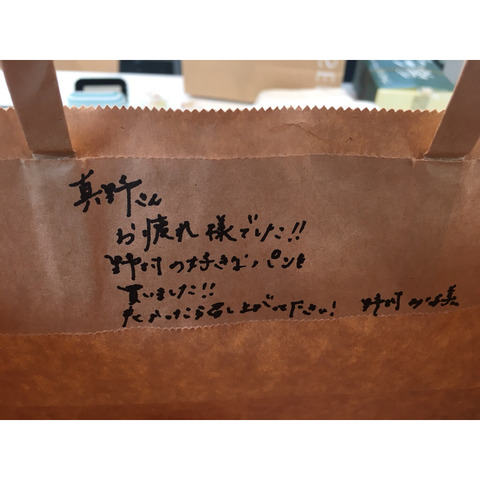 真野さん
お疲れ様でした!!
野村の好きなパンを
買いました!!
よかったら召し上がって下さい! 野村